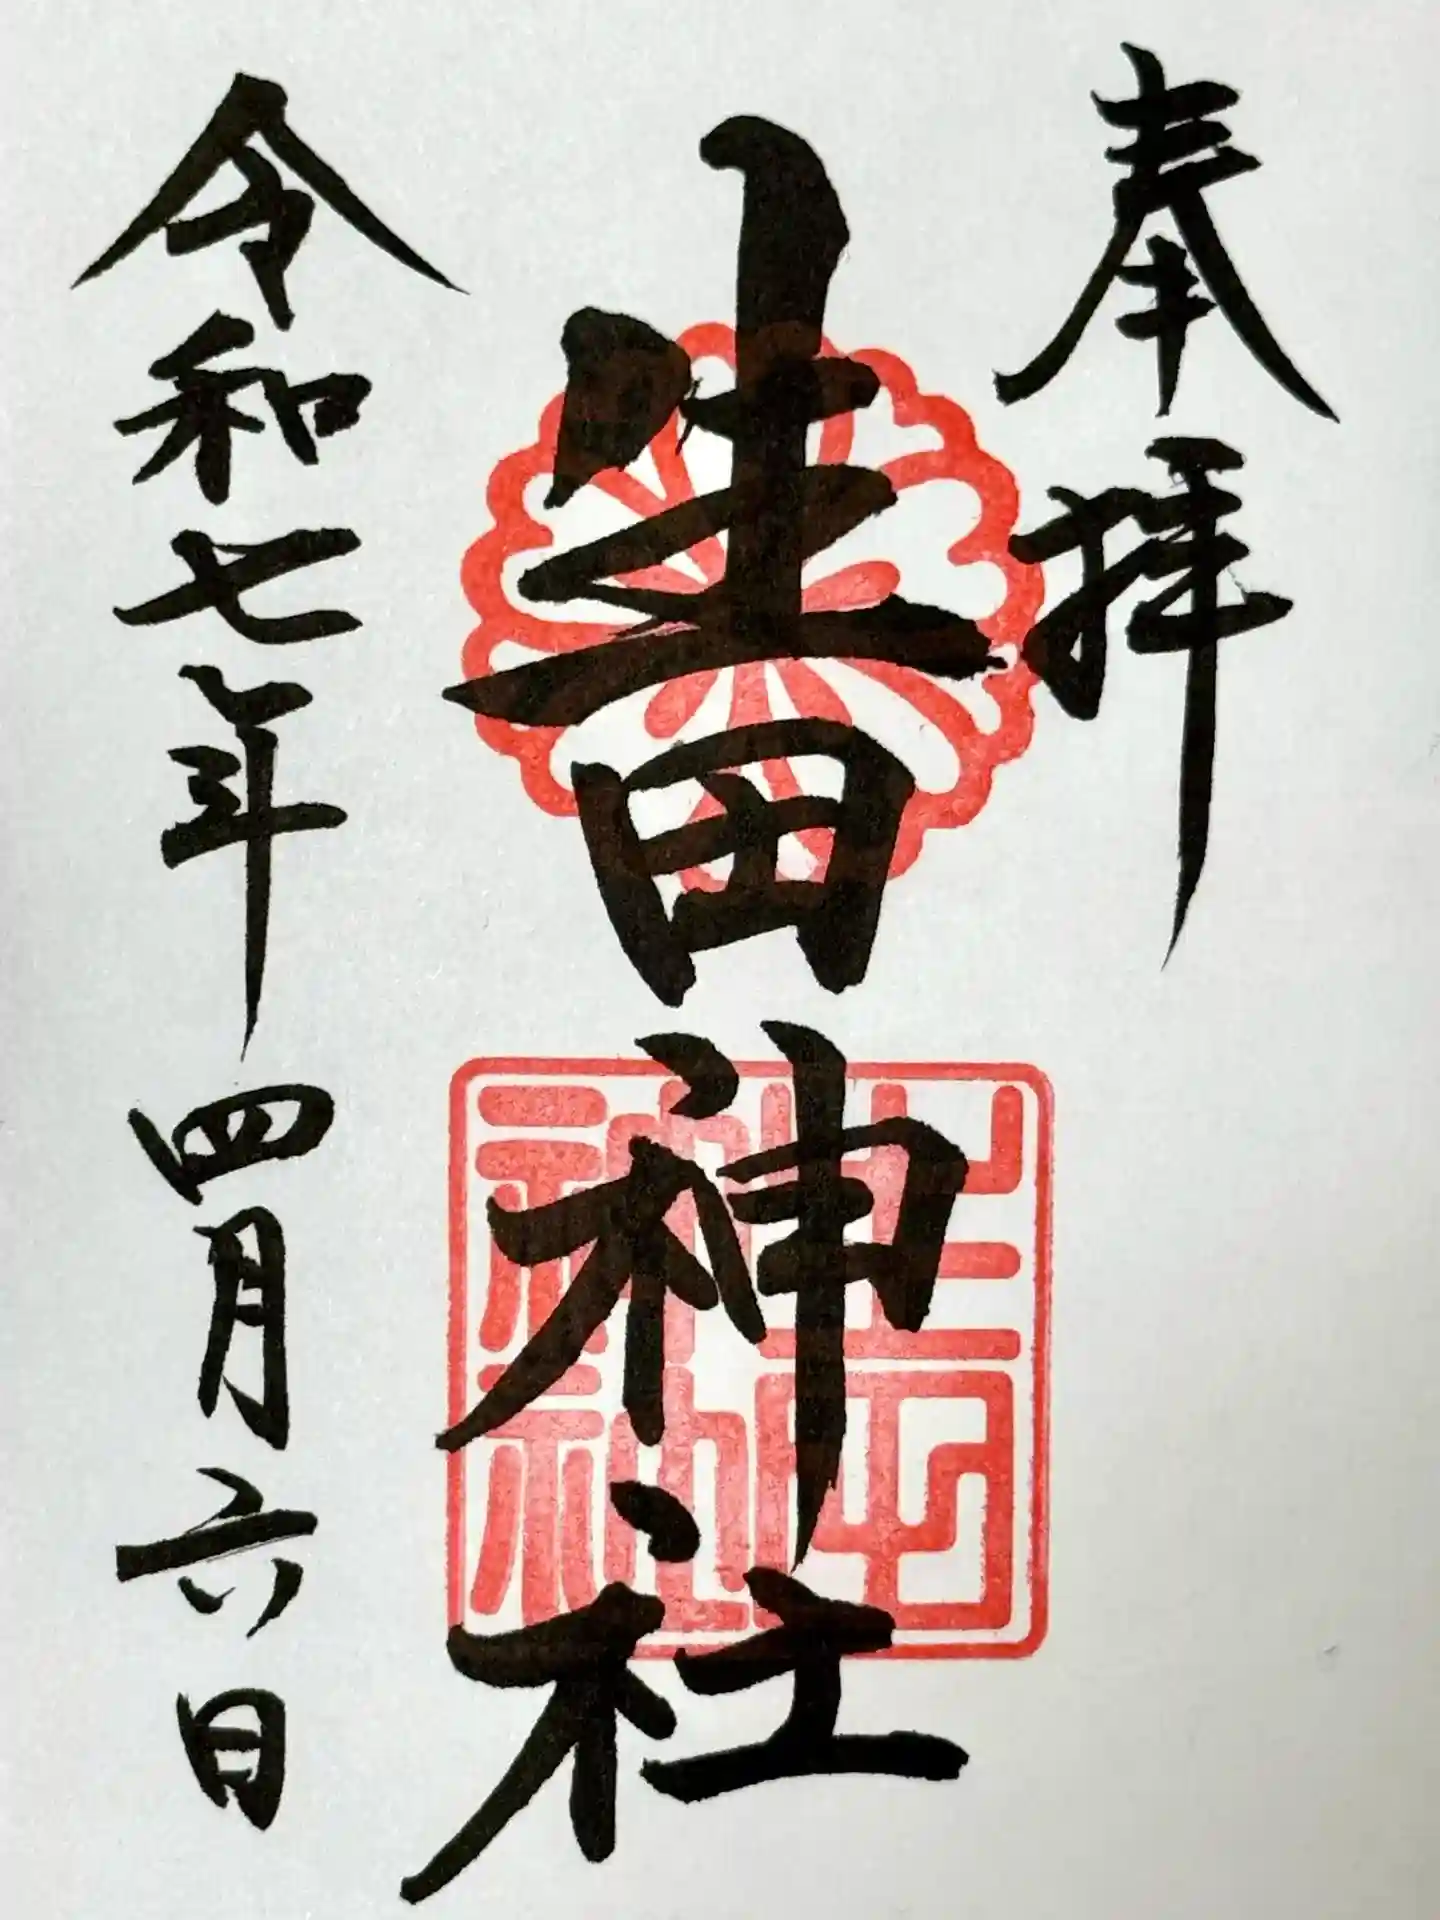 奉拝
生田神社
生田神社
令和七年四月六日